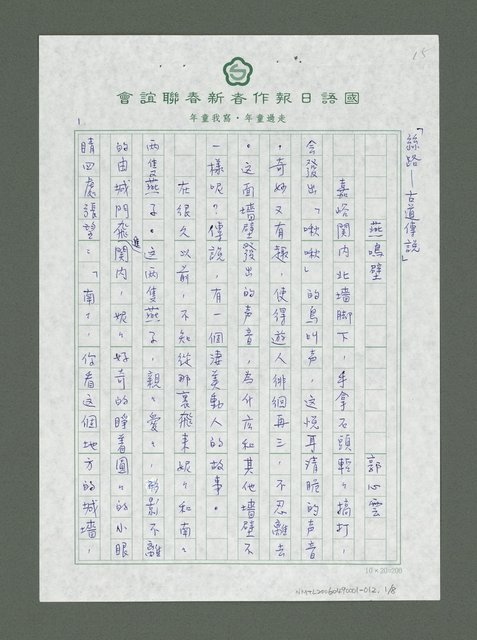 15
會誼聯春新者作報日語國
年童我寫・年童過走
1.
「絲路—古道傳說」
燕鳴壁
郭心雲
嘉峪關内北墙脚下，手拿石頭輕々搞打，
会發出「啾啾」的鳥叫声，这悦耳清脆的声音
，奇妙又有趣，使得遊人徘徊再三，不忍離去
。这面墙壁發出的声音，為什広和其他墙壁不
一樣呢？傳說，有一個淒美動人的故事。
在很久以前，不知從那裏飛來妮々和南々
两隻燕子。这两隻燕子，親々愛々，形影不離
的由城門飛進関内，妮々好奇的睜着圓々的小眼
睛四處張望：「南々，你看这個地方的城墙，
10×20=200
NMTL20060490001-012. 1/8